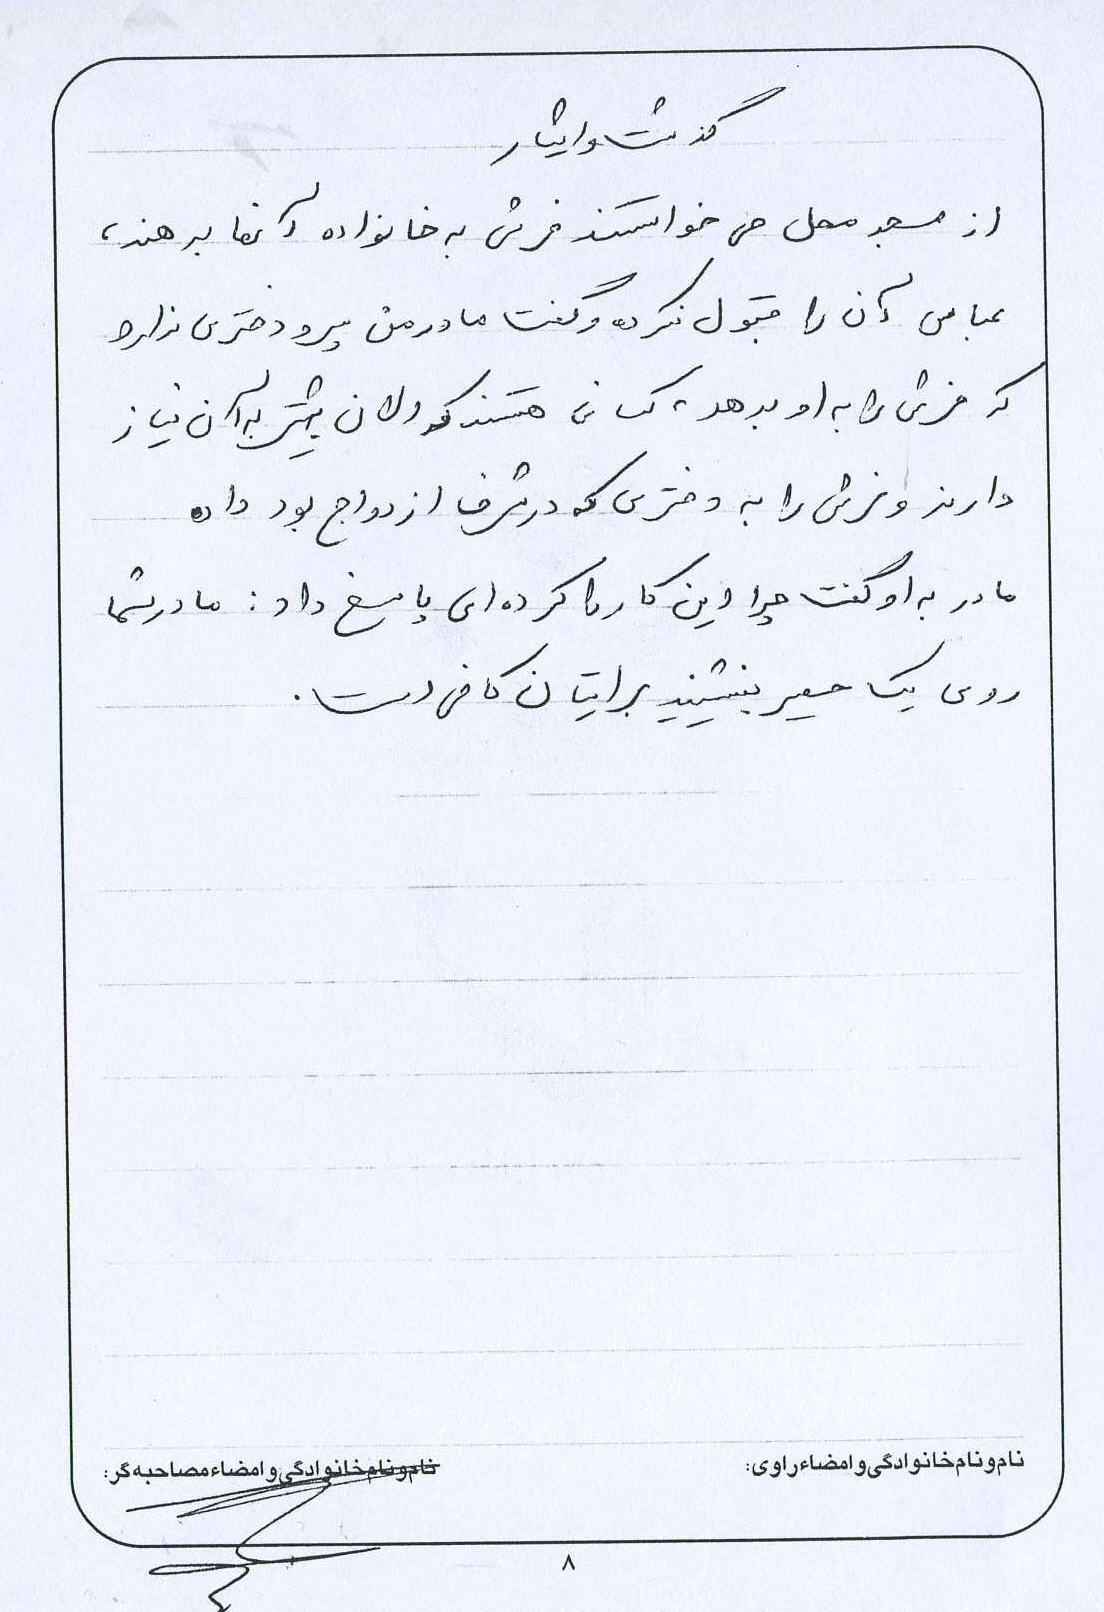 گذشت و ایثار
از مسجد محل می خواستند فرش به خانواده آنها بدهند،
عباس آن را قبول نکرده و گفت مادر من پسر و دختری ندارد
که فرش را به او بدهد، کسانی هستند که الان بیشتر به آن نیاز
دارند و فرش را به دختری که در شرف ازدواج بود داد
مادر به او گفت چرا این کار را کرده ای پاسخ داد: مادر شما
روی یک حصیر بنشینید برایتان کافی است.
نام و نام خانوادگی و امضاء راوی:
نام و نام خانوادگی و امضاء مصاحبه گر:
۸